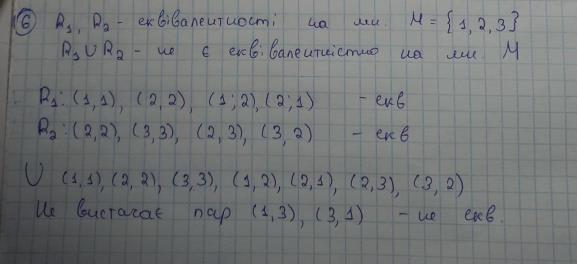 6 R₁, R₂ - еквівалентності на мн. M = {1, 2, 3}
R₁ ∪ R₂ - не є еквівалентністю на мн. M
R₁: (1,1), (2,2), (1;2), (2;1) - екв
R₂: (2,2), (3,3), (2,3), (3,2) - екв
∪ (1,1), (2,2), (3,3), (1,2), (2,1), (2,3), (3,2)
Не вистачає пар (1,3), (3,1) - не екв.